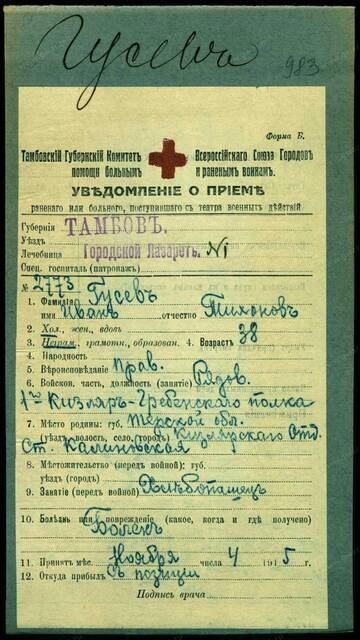 Гусевъ
983
Форма Б.
Тамбовскій Губернскій Комитетъ Всероссійскаго Союза Городовъ
помощи больнымъ и раненымъ воинамъ.
УВѢДОМЛЕНІЕ О ПРІЕМѢ
раненаго или больного, поступившаго съ театра военныхъ дѣйствій.
Губернія ТАМБОВЪ.
Уѣздъ
Лечебница Городской Лазаретъ. №1
Спец. госпиталь (патронажъ)
№ 2773
1. Фамилія Гусевъ
имя Иванъ отчество Тихоновъ
2. Хол., жен., вдовъ
3. Неграм., грамотн., образован. 4. Возрастъ 38
4. Народность
5. Вѣроисповѣданіе прав.
6. Войсков. часть, должность (занятіе) Рядов.
1го Кизляр-Гребенского полка
7. Мѣсто родины: губ. Терской обл.
(уѣздъ, волость, село, городъ) Кизлярскаго Отд.
Ст. Калиновская
8. Мѣстожительство (передъ войной): губ.
уѣздъ (городъ)
9. Занятіе (передъ войной) Хлѣбопашецъ
10. Болѣзнь или поврежденіе (какое, когда и гдѣ получено)
Боленъ
11. Принятъ мѣс. Ноября числа 4 1915 г.
12. Откуда прибылъ Съ позиціи
Подпись врача